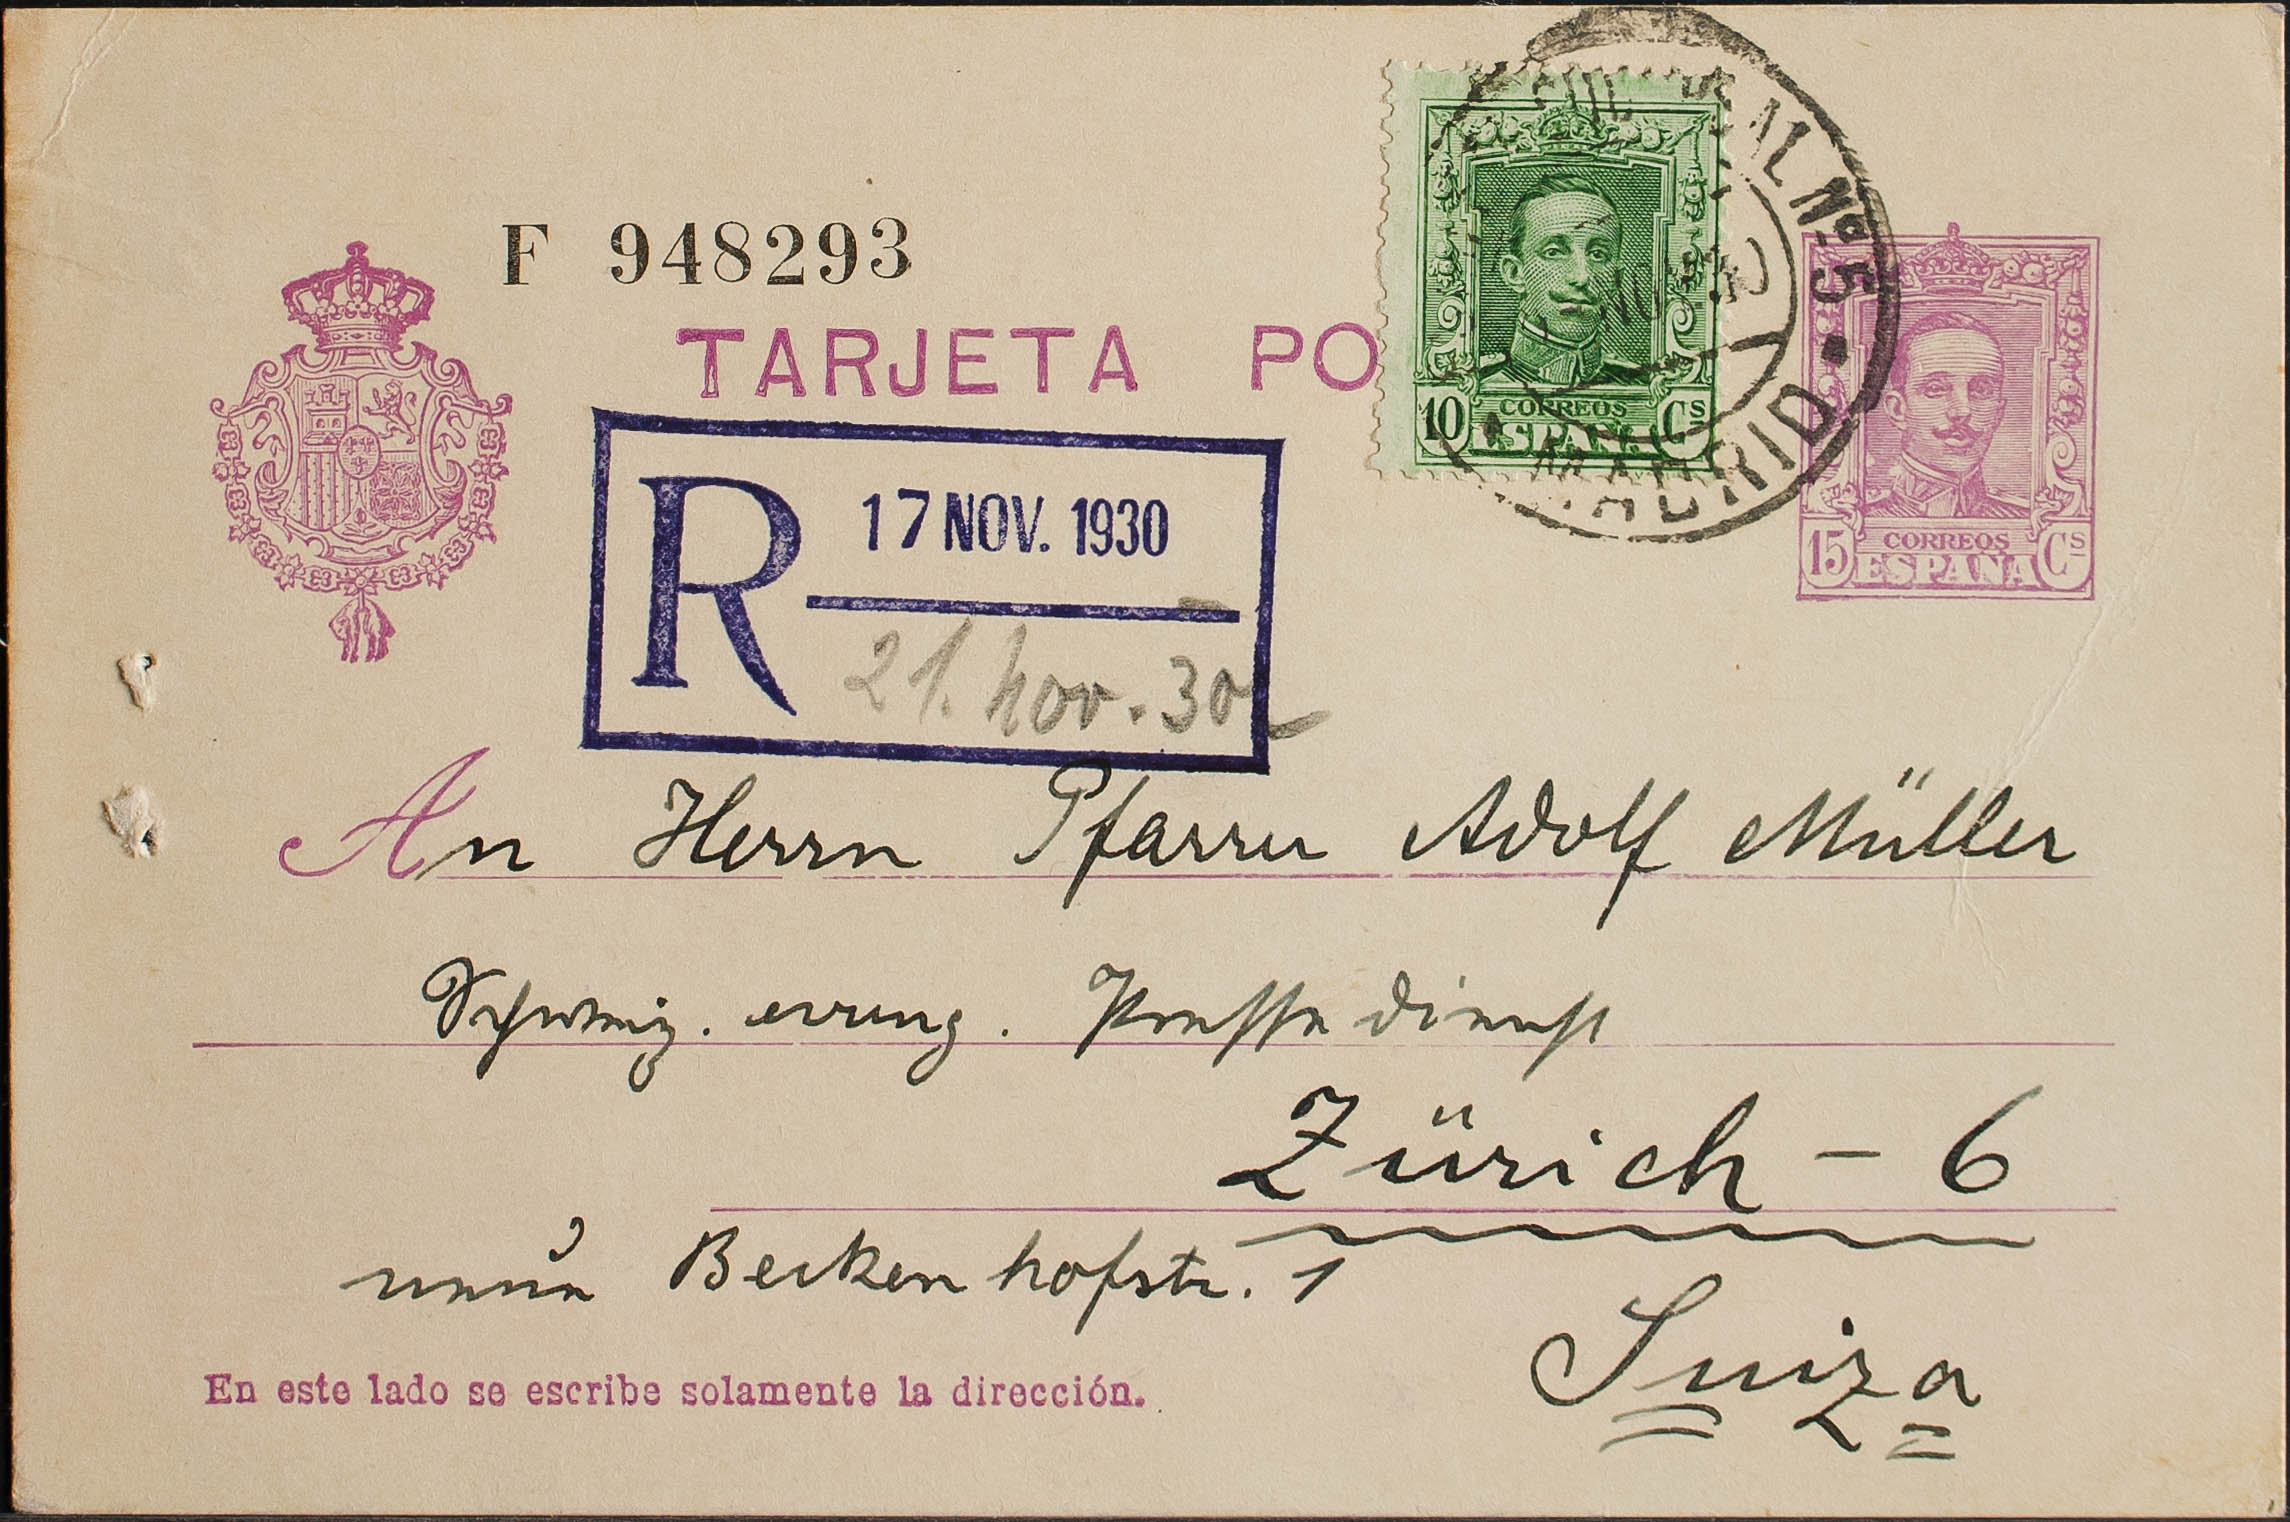 F 948293
TARJETA PO
SUCURSAL Nª 5
MADRID
10 CORREOS Cs
ESPAÑA
15 CORREOS Cs
ESPAÑA
R 17 NOV. 1930
21. Nov. 30
An Herrn Pfarrer Adolf Müller
Schweiz. evang. Pressedienst
Zürich - 6
neue Beckenhofstr. 1
Suiza
En este lado se escribe solamente la dirección.